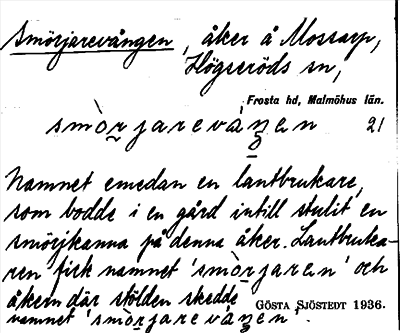 Smörjarevången, åker å Mossarp,
Högseröds sn,
Frosta hd, Malmöhus län.
smòr̰jareváŋ̱en 21
Namnet emedan en lantbrukare,
som bodde i en gård intill stulit en
smörjkanna på denna åker. Lantbruka-
ren fick namnet 'smòrjaren' och
åkern där stölden skedde
GÖSTA SJÖSTEDT 1936.
namnet 'smòrjareváŋen'.